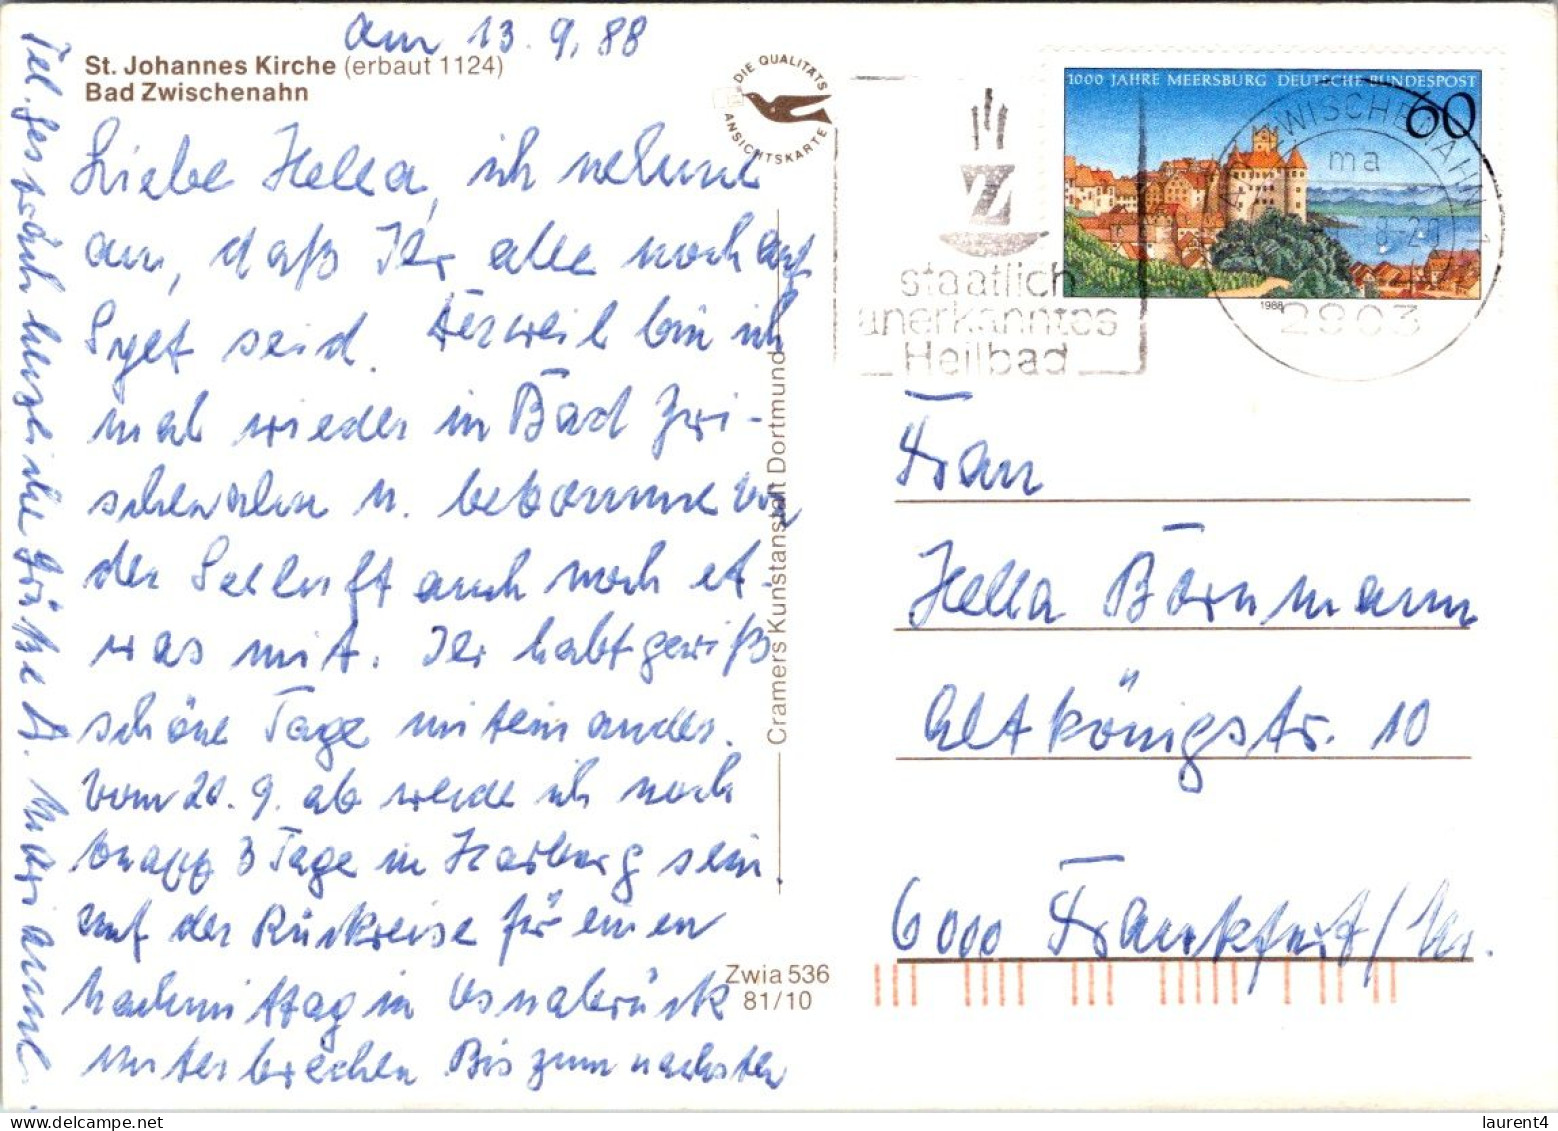 am 13.9.88
St. Johannes Kirche (erbaut 1124)
Bad Zwischenahn
DIE QUALITÄTS
ANSICHTSKARTE
Liebe Hella, ich nehme
an, daß Ihr alle noch auf
Sylt seid. Derweil bin ich
mal wieder in Bad Zwi-
schenahn u. bekomme von
der Seeluft auch noch et-
was mit. Ihr habt gewiß
schöne Tage miteinander.
Vom 20.9. ab werde ich noch
knapp 3 Tage in Harburg sein,
auf der Rückreise für einen
Nachmittag in Osnabrück
unterbrechen Bis zum nächsten
Tel.gespräch herzliche Grüße D. Marianne.
Cramers Kunstanstalt Dortmund
Zwia 536
81/10
staatlich
anerkanntes
Heilbad
1000 JAHRE MEERSBURG DEUTSCHE BUNDESPOST
60
1988
ZWISCHENAHN 1
ma
8-20
2903
Frau
Hella Bornmann
Altkönigstr. 10
6000 Frankfurt/M.
laurent4